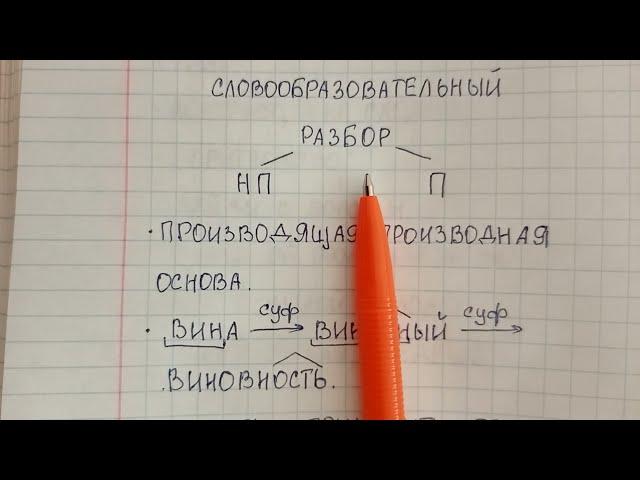 СЛОВООБРАЗОВАТЕЛЬНЫЙ
РАЗБОР
НП П
· ПРОИЗВОДЯЩАЯ ПРОИЗВОДНАЯ
ОСНОВА.
суф суф
· ВИНА
ВИНОВНОСТЬ.